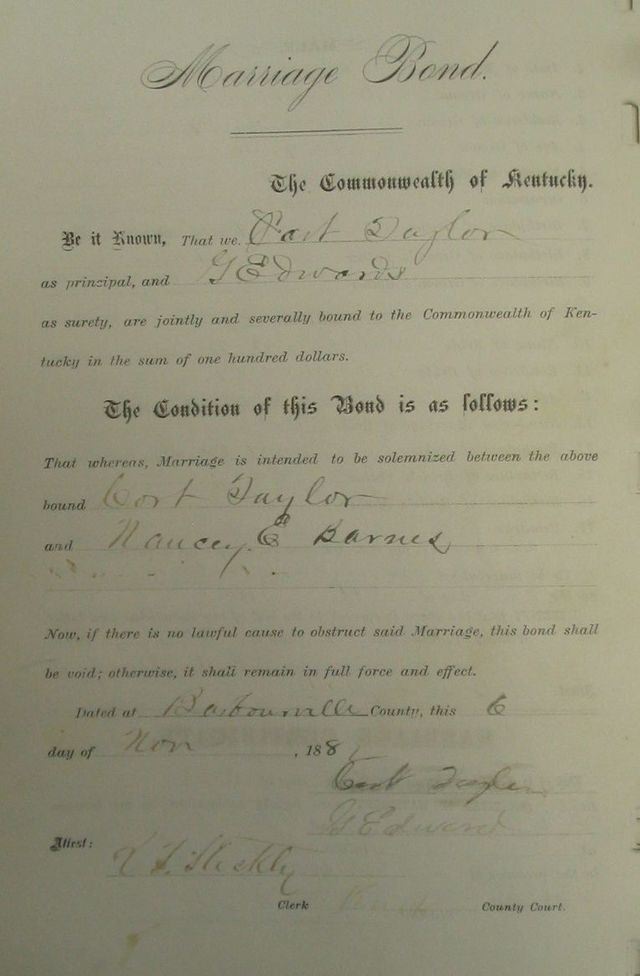 Marriage Bond.
The Commonwealth of Kentucky.
Be it Known, That we Cort Taylor
as principal, and G Edwards
as surety, are jointly and severally bound to the Commonwealth of Ken-
tucky in the sum of one hundred dollars.
The Condition of this Bond is as follows:
That whereas, Marriage is intended to be solemnized between the above
bound Cort Taylor
and Nancey E Barnes
Now, if there is no lawful cause to obstruct said Marriage, this bond shall
be void; otherwise, it shall remain in full force and effect.
Dated at Barbourville County, this 6
day of Nov, 188
Cort Taylor
G Edward
Attest:
Clerk County Court.